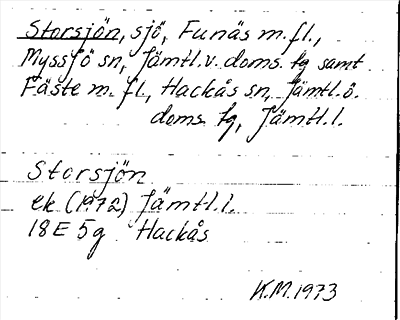 Storsjön, sjö, Funäs m.fl.,
Myssjö sn, Jämtl.v. doms. tg samt
Fäste m. fl., Hackås sn, Jämtl.ö.
doms. tg, Jämtl.l.
Storsjön
ek (1972) Jämtl.l.
18E 5g Hackås
K.M.1973